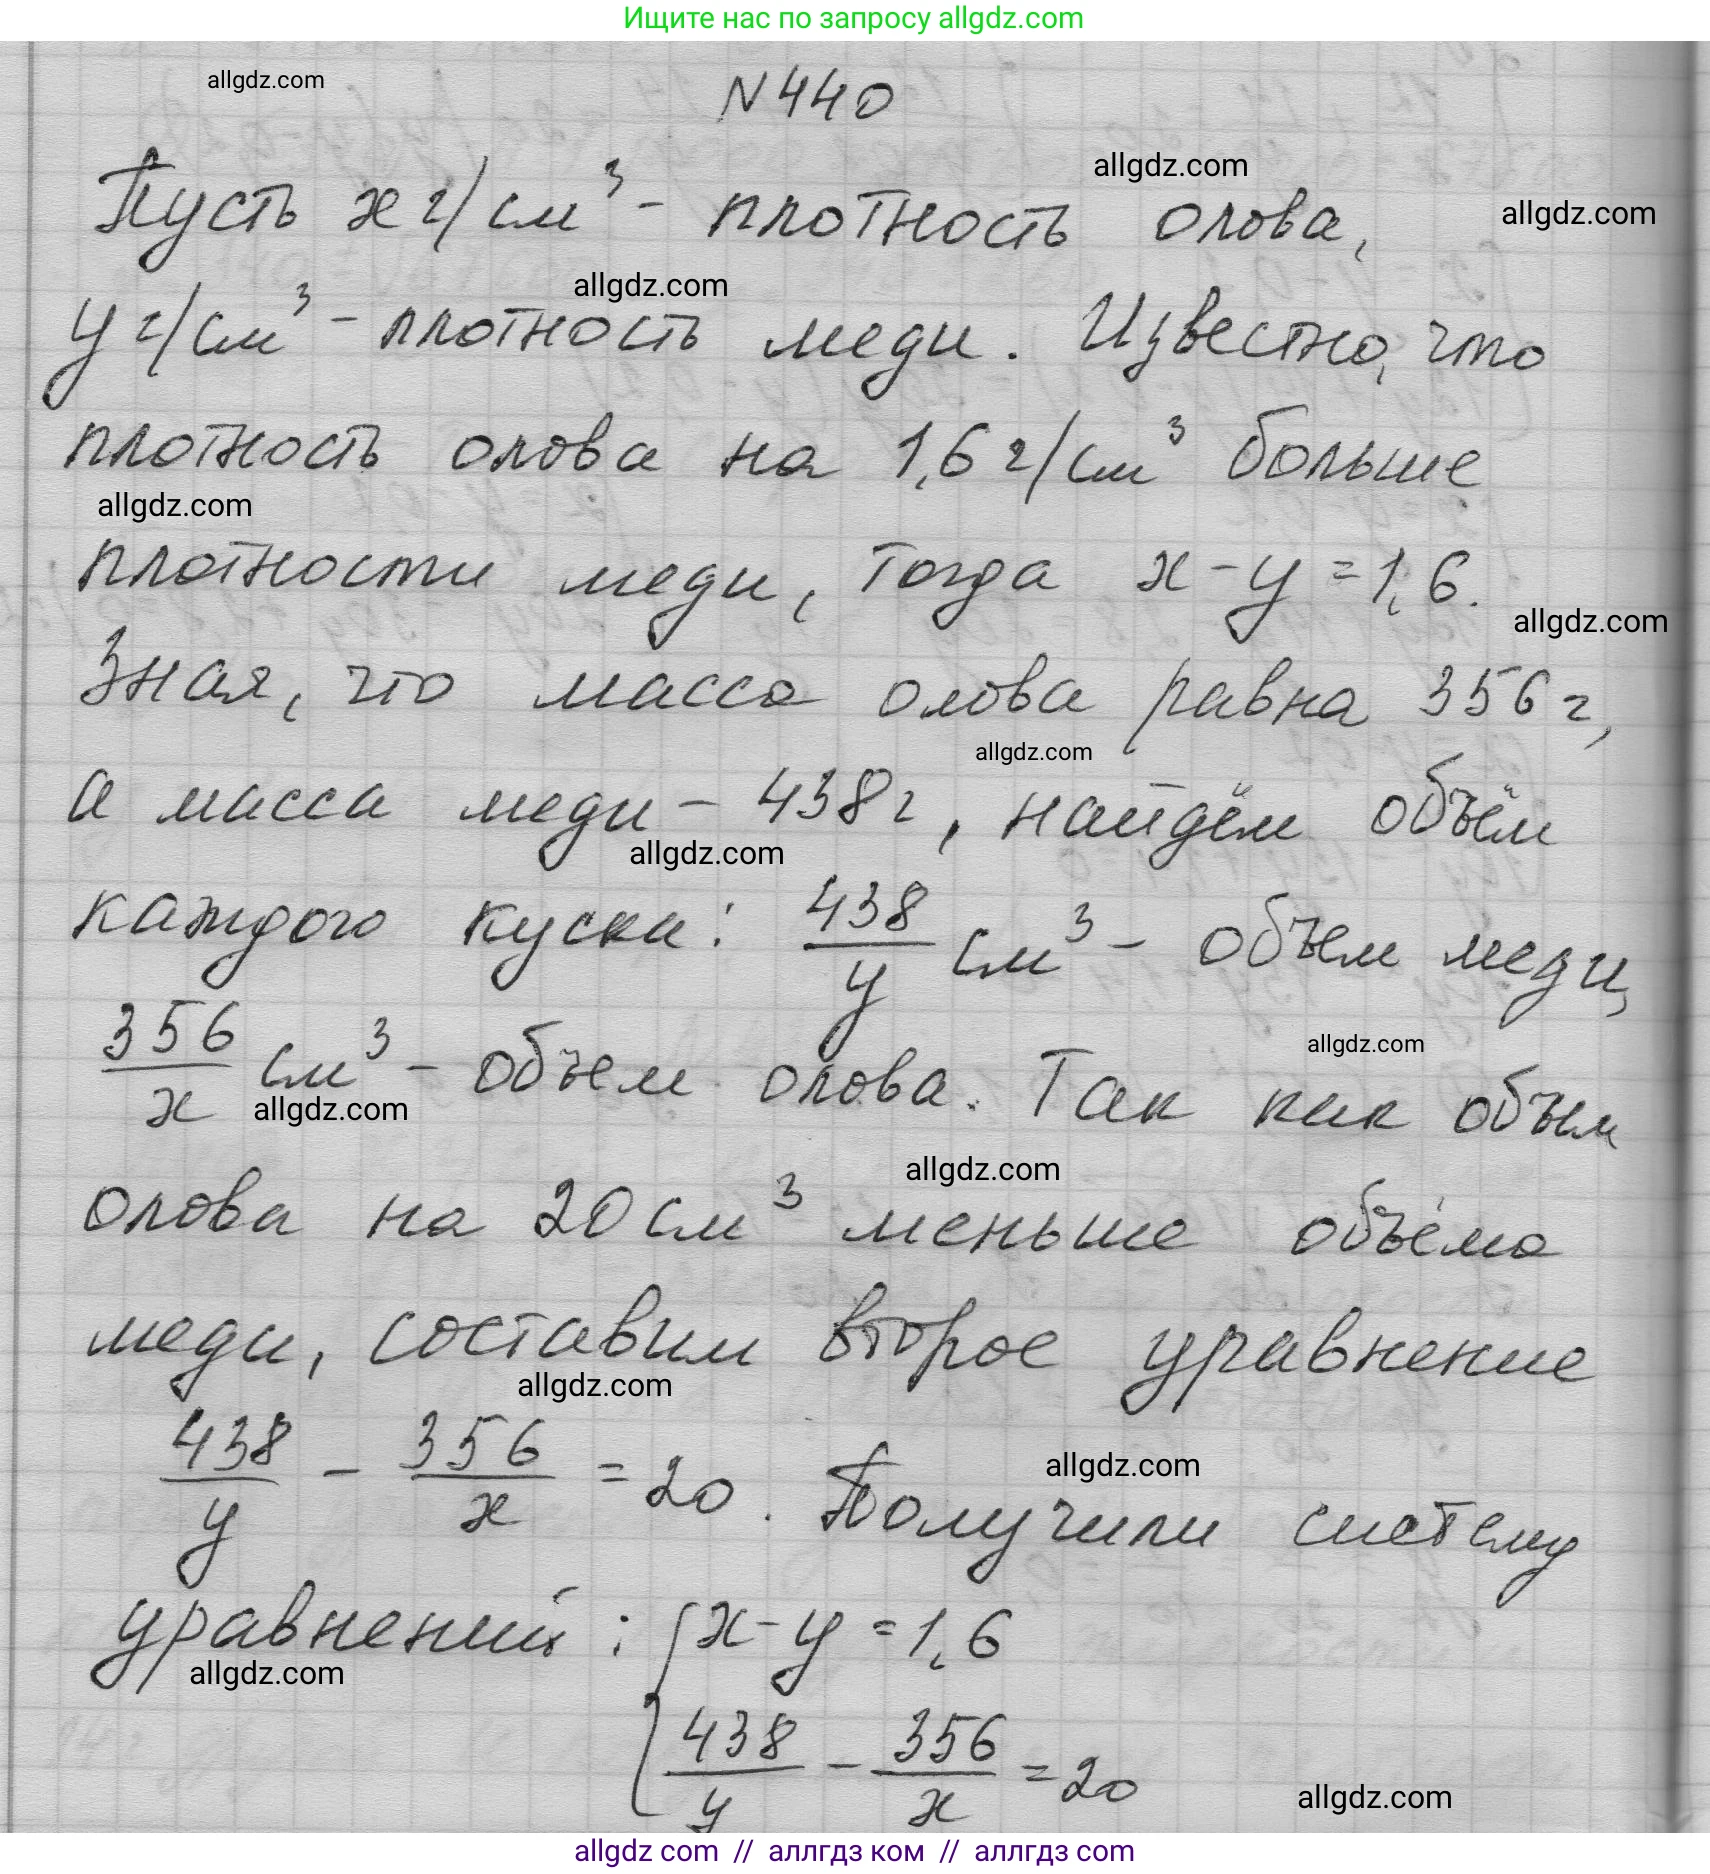 Ищите нас по запросу allgdz.com
allgdz.com
N 440
allgdz.com
Пусть x г/см³ - плотность олова,
allgdz.com
allgdz.com
y г/см³ - плотность меди. Известно, что
плотность олова на 1,6 г/см³ больше
allgdz.com
плотности меди, тогда x - y = 1,6.
allgdz.com
Зная, что масса олова равна 356 г,
allgdz.com
а масса меди - 438 г, найдём объём
allgdz.com
каждого куска: 438/y см³ - объем меди,
356/x см³ - объем олова. Так как объем
allgdz.com
allgdz.com
allgdz.com
олова на 20 см³ меньше объёма
меди, составим второе уравнение
allgdz.com
438/y - 356/x = 20. Получили систему
allgdz.com
уравнений: { x - y = 1,6
allgdz.com
438/y - 356/x = 20
allgdz.com
allgdz.com // аллгдз ком // аллгдз com